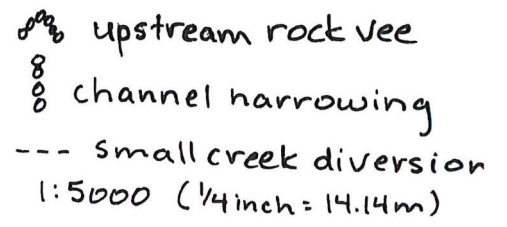 upstream rock vee
channel narrowing
--- small creek diversion
1:5000 (1/4 inch = 14.14m)